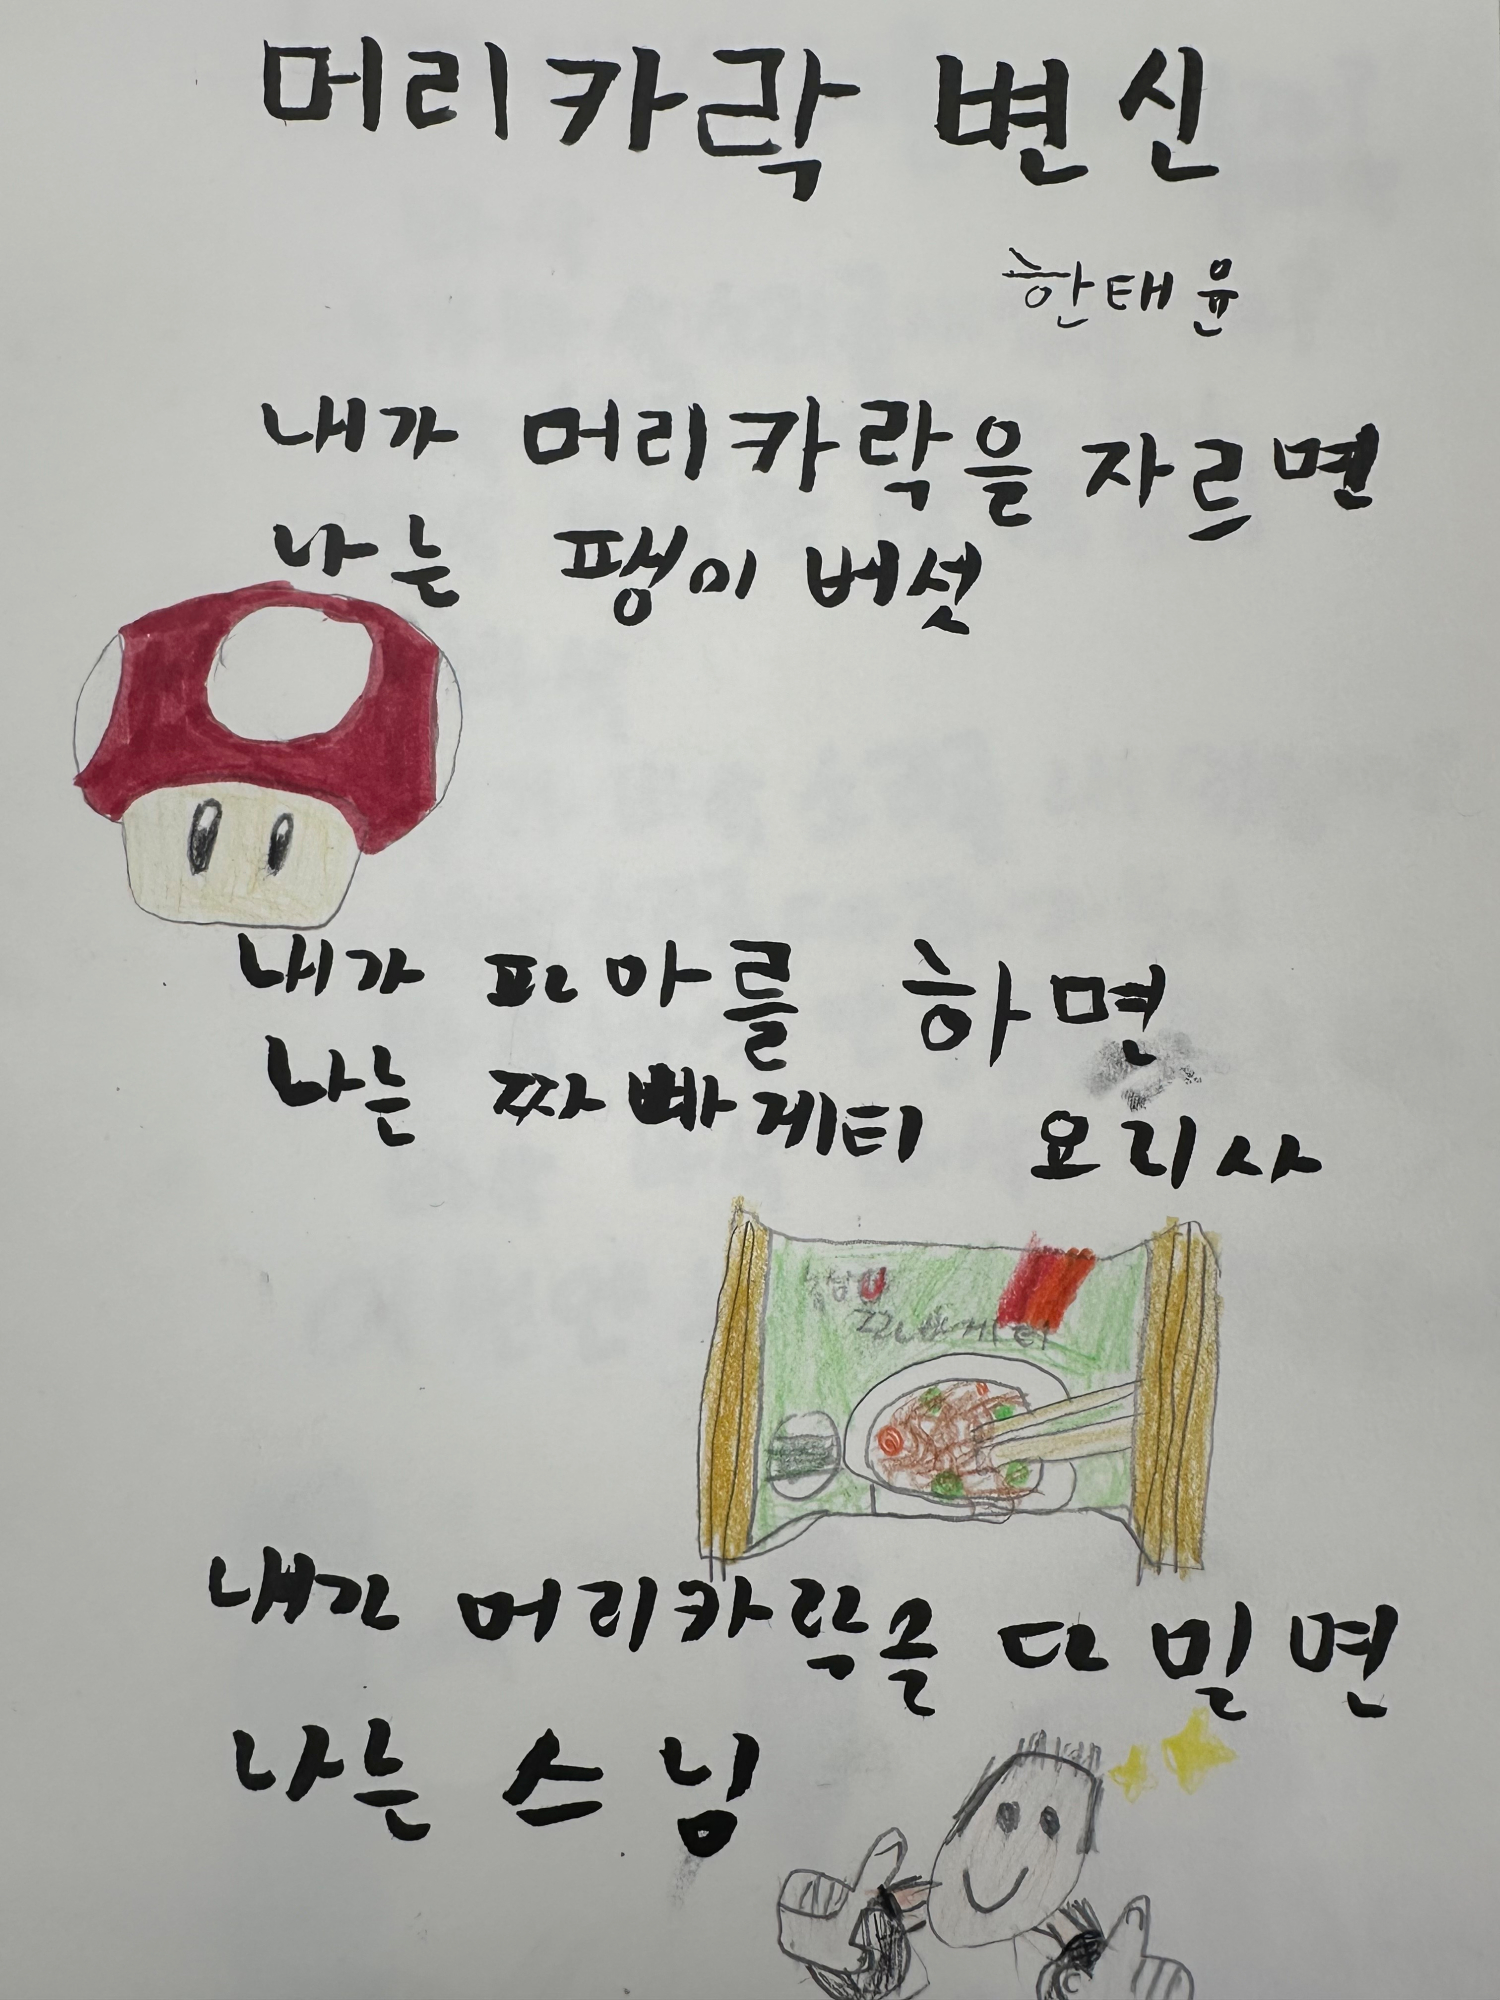 머리카락 변신
한태윤
내가 머리카락을 자르면
나는 팽이버섯
내가 파마를 하면
나는 짜빠게티 요리사
농심
짜빠게티
내가 머리카락을 다 밀면
나는 스님